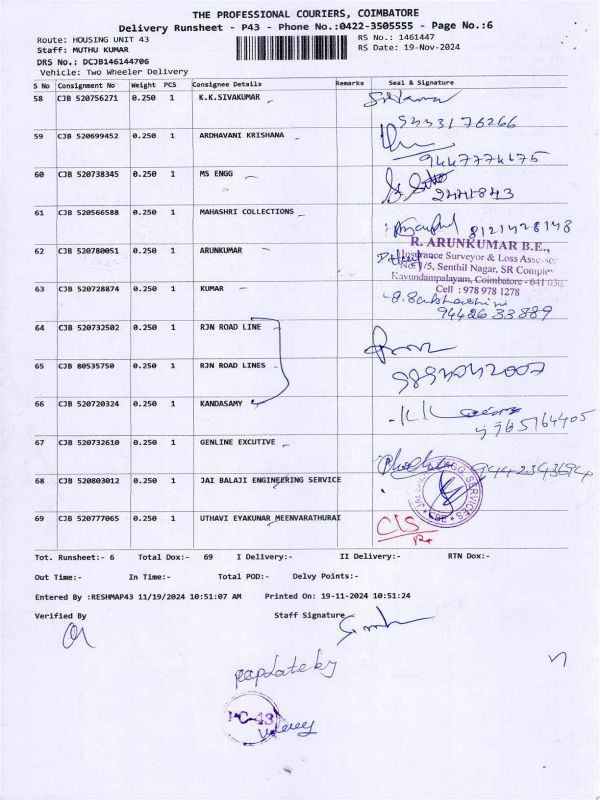 THE PROFESSIONAL COURIERS, COIMBATORE
Delivery Runsheet - P43 - Phone No.:0422-3505555 - Page No.:6
Route: HOUSING UNIT 43 RS No.: 1461447
Staff: MUTHU KUMAR RS Date: 19-Nov-2024
DRS No.: DCJB146144706
Vehicle: Two Wheeler Delivery
S No Consignment No Weight PCS Consignee Details Remarks Seal & Signature
58 CJB 520756271 0.250 1 K.K.SIVAKUMAR
59 CJB 520699452 0.250 1 ARDHAVANI KRISHANA
60 CJB 520738345 0.250 1 MS ENGG
2441843
61 CJB 520566588 0.250 1 MAHASHRI COLLECTIONS
8121428148
R. ARUNKUMAR B.E.,
62 CJB 520780051 0.250 1 ARUNKUMAR
Insurance Surveyor & Loss Assessor
No: 1/5, Senthil Nagar, SR Complex
Kavundampalayam, Coimbatore - 641 030.
63 CJB 520728874 0.250 1 KUMAR
Cell : 978 978 1278
9442633889
64 CJB 520732502 0.250 1 RJN ROAD LINE
65 CJB 80535750 0.250 1 RJN ROAD LINES
66 CJB 520720324 0.250 1 KANDASAMY
67 CJB 520732610 0.250 1 GENLINE EXCUTIVE
68 CJB 520803012 0.250 1 JAI BALAJI ENGINEERING SERVICE
69 CJB 520777065 0.250 1 UTHAVI EYAKUNAR MEENVARATHURAI
CBE
Tot. Runsheet:- 6 Total Dox:- 69 I Delivery:- II Delivery:- RTN Dox:-
Out Time:- In Time:- Total POD:- Delvy Points:-
Entered By :RESHMAP43 11/19/2024 10:51:07 AM Printed On: 19-11-2024 10:51:24
Verified By Staff Signature
PC-43